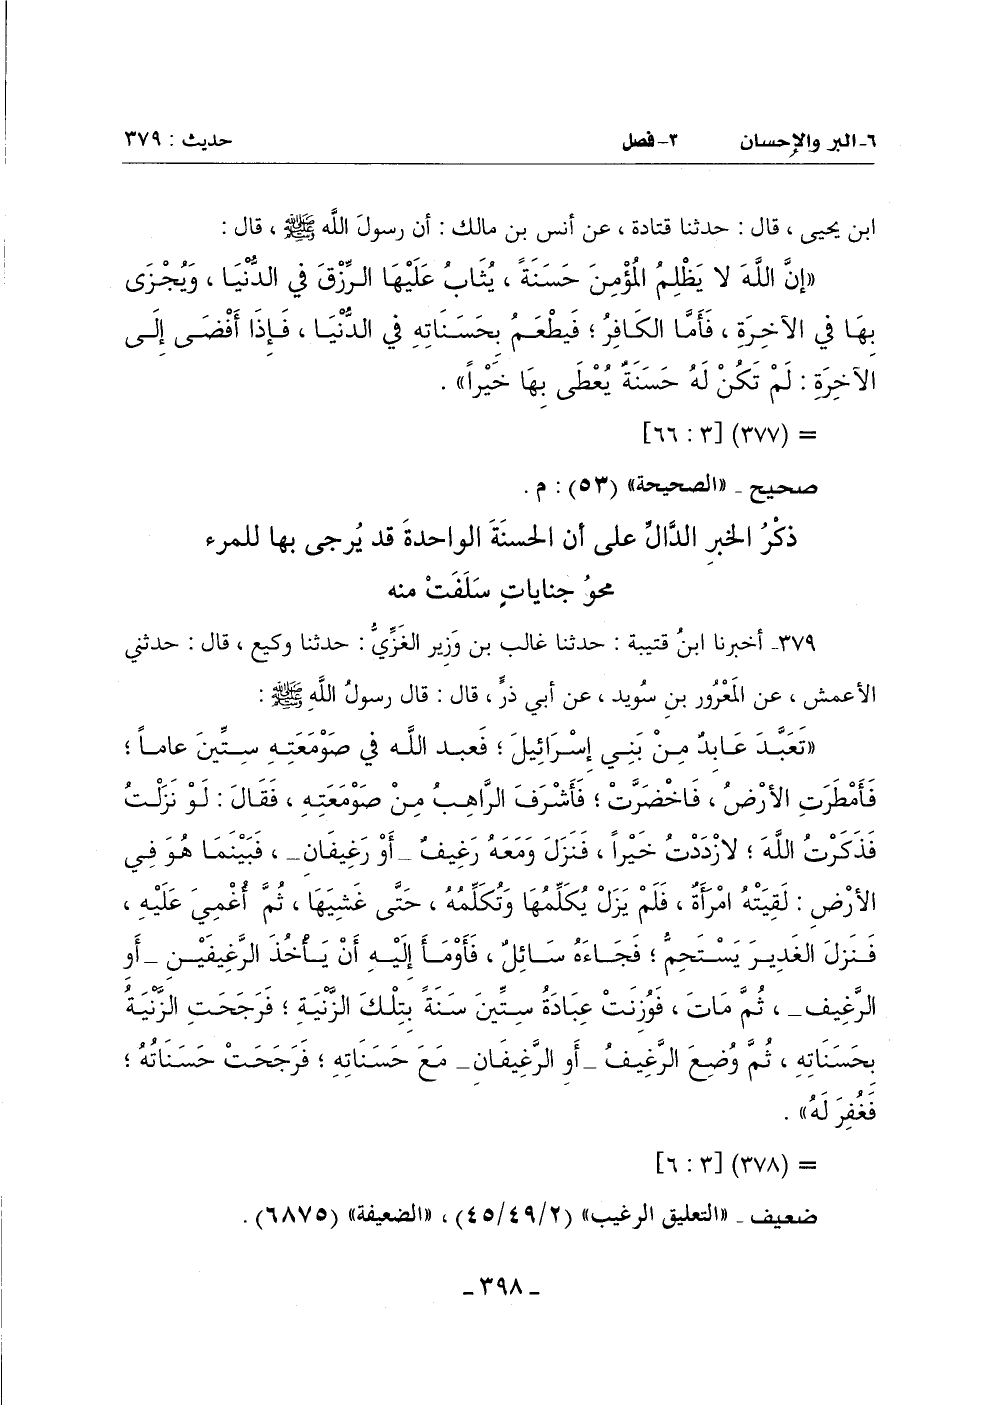 ٦ـ البر والإحسان ٢ـ فصل حديث : ٣٧٩
ابن يحيى ، قال : حدثنا قتادة ، عن أنس بن مالك : أن رسولَ اللَّه ﷺ ، قال :
«إنَّ اللَّهَ لا يَظْلِمُ المُؤْمِنَ حَسَنَةً ، يُثَابُ عَلَيْهَا الرِّزْقَ في الدُّنْيَا ، وَيُجْزَى
بِهَا في الآخِرَةِ ، فَأَمَّا الكَافِرُ ؛ فَيطْعَمُ بِحَسَنَاتِهِ في الدُّنْيَا ، فَإِذَا أَفْضَى إِلَى
الآخِرَةِ : لَمْ تَكُنْ لَهُ حَسَنَةٌ يُعْطَى بِهَا خَيْراً» .
= (٣٧٧) [٣ : ٦٦]
صحيح ـ «الصحيحة» (٥٣) : م .
ذكْرُ الخبرِ الدَّالِّ على أن الحسنَةَ الواحدةَ قد يُرجى بها للمرء
محوُ جناياتٍ سَلَفَتْ منه
٣٧٩ـ أخبرنا ابنُ قتيبة : حدثنا غالب بن وَزير الغَزِّيُّ : حدثنا وكيع ، قال : حدثني
الأعمش ، عن المَعْرُورِ بن سُويد ، عن أبي ذرٍّ ، قال : قال رسولُ اللَّهِ ﷺ :
«تَعَبَّدَ عَابِدٌ مِنْ بَنِي إسْرَائِيلَ ؛ فَعبد اللَّه في صَوْمَعَتِهِ سِتِّينَ عاماً ؛
فَأَمْطَرَتِ الأرْضُ ، فَاخْضَرَّتْ ؛ فَأَشْرَفَ الرَّاهِبُ مِنْ صَوْمَعَتِهِ ، فَقَالَ : لَوْ نَزَلْتُ
فَذَكَرْتُ اللَّهَ ؛ لازْدَدْتُ خَيْراً ، فَنَزَلَ وَمَعَهُ رَغِيفٌ ـ أَوْ رَغِيفَانِ ـ ، فَبَيْنَمَا هُوَ فِي
الأرْضِ : لَقِيَتْهُ امْرَأَةٌ ، فَلَمْ يَزَلْ يُكَلِّمُهَا وَتُكَلِّمُهُ ، حَتَّى غَشِيَهَا ، ثُمَّ أُغْمِيَ عَلَيْهِ ،
فَنَزلَ الغَدِيرَ يَسْتَحِمُّ ؛ فَجَاءَهُ سَائِلٌ ، فَأَوْمَأَ إلَيْهِ أَنْ يَأخُذَ الرَّغِيفَيْنِ ـ أَوِ
الرَّغِيفَ ـ ، ثُمَّ مَاتَ ، فَوُزِنَتْ عِبَادَةُ سِتِّينَ سَنَةً بِتِلْكَ الزَّنْيَةِ ؛ فَرَجَحَتِ الزَّنْيَةُ
بِحَسَنَاتِهِ ، ثُمَّ وُضِعَ الرَّغِيفُ ـ أَوِ الرَّغِيفَانِ ـ مَعَ حَسَنَاتِهِ ؛ فَرَجَحَتْ حَسَنَاتُهُ ؛
فَغُفِرَ لَهُ» .
= (٣٧٨) [٣ : ٦]
ضعيف ـ «التعليق الرغيب» (٤٥/٤٩/٢) ، «الضعيفة» (٦٨٧٥) .
ـ ٣٩٨ ـ